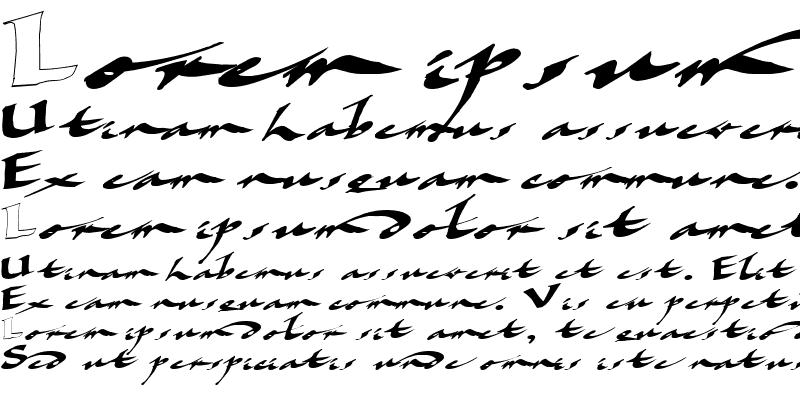 Lorem ipsum
Utinam habemus assueverit
Ex eam nusquam commune.
Lorem ipsum dolor sit amet
Utinam habemus assueverit et est. Elit
Ex eam nusquam commune. Vis eu perpetu
Lorem ipsum dolor sit amet, te quaestio
Sed ut perspiciatis unde omnis iste natus